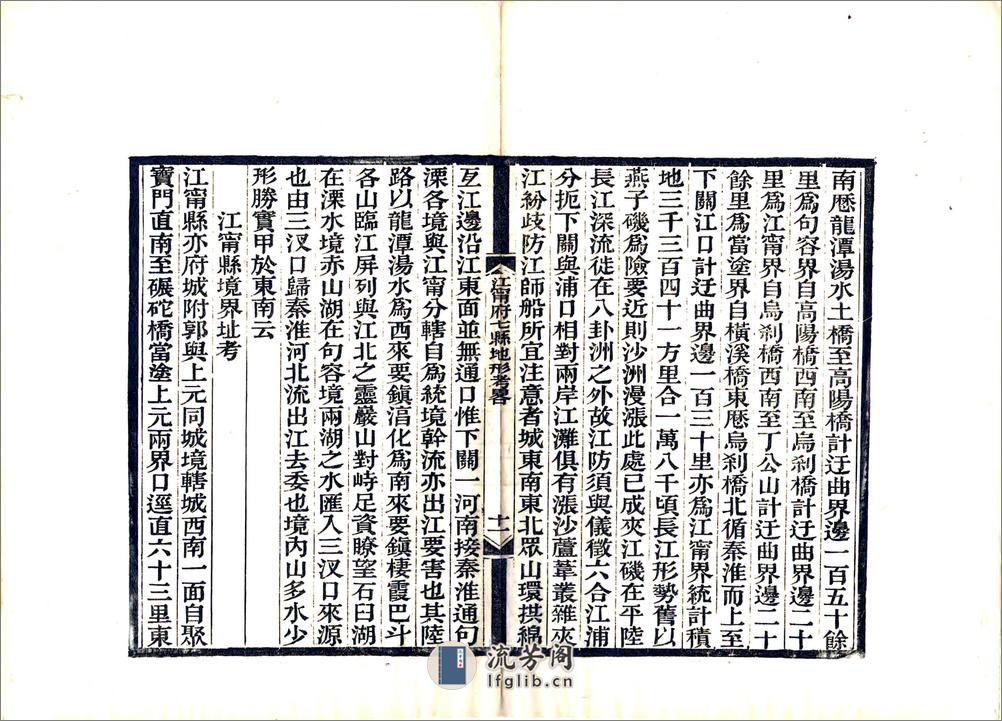 南歷龍潭湯水土橋至高陽橋計迂曲界邊一百五十餘
里爲句容界自高陽橋西南至烏刹橋計迂曲界邊二十
里爲江甯界自烏刹橋西南至丁公山計迂曲界邊二十
餘里爲當塗界自橫溪橋東歷烏刹橋北循秦淮而上至
下關江口計迂曲界邊一百三十里亦爲江甯界統計積
地三千三百四十一方里合一萬八千頃長江形勢舊以
燕子磯爲險要近則沙洲漫漲此處已成夾江磯在平陸
長江深流徙在八卦洲之外故江防須與儀徵六合江浦
分扼下關與浦口相對兩岸江灘俱有漲沙蘆葦叢雜夾
江紛歧防江師船所宜注意者城東南東北眾山環拱綿
江甯府七縣地形考畧
十一
亙江邊沿江東面並無通口惟下關一河南接秦淮通句
溧各境與江甯分轄自爲統境幹流亦出江要害也其陸
路以龍潭湯水爲西來要鎮淳化爲南來要鎮棲霞巴斗
各山臨江屏列與江北之靈巖山對峙足資瞭望石臼湖
在溧水境赤山湖在句容境兩湖之水匯入三汊口來源
也由三汊口歸秦淮河北流出江去委也境內山多水少
形勝實甲於東南云
江甯縣境界址考
江甯縣亦府城附郭與上元同城境轄城西南一面自聚
寶門直南至碾砣橋當塗上元兩界口逕直六十三里東
流芳阁
lfglib.cn